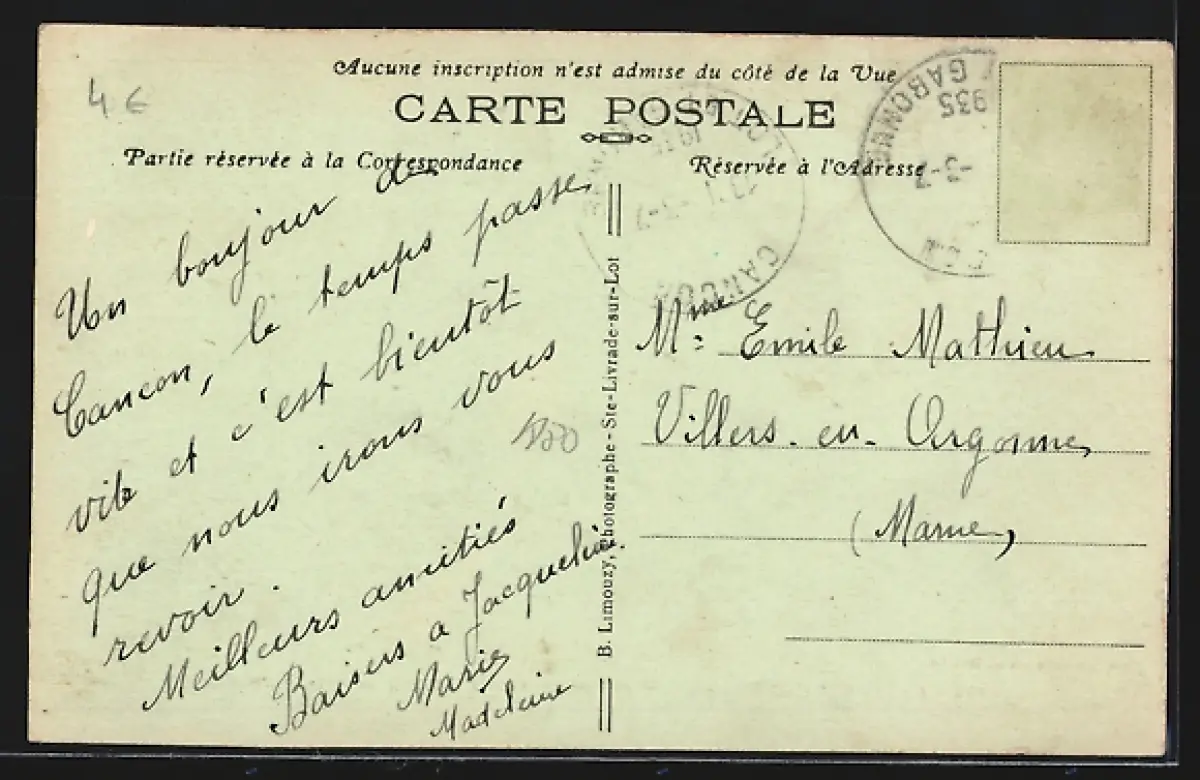 4 €
Aucune inscription n'est admise du côté de la Vue
CARTE POSTALE
Partie réservée à la Correspondance
Réservée à l'Adresse
Un bonjour de
Cancon, le temps passe
vite et c'est bientôt
que nous irons vous
revoir.
Meilleurs amitiés
Baisers a Jacqueline.
Marie
Madeleine
B. Limouzy, Photographe - Ste-Livrade-sur-Lot
CANCON
-3-7
935
Mme Emile Mathieu
Villers-en-Argonne,
(Marne)